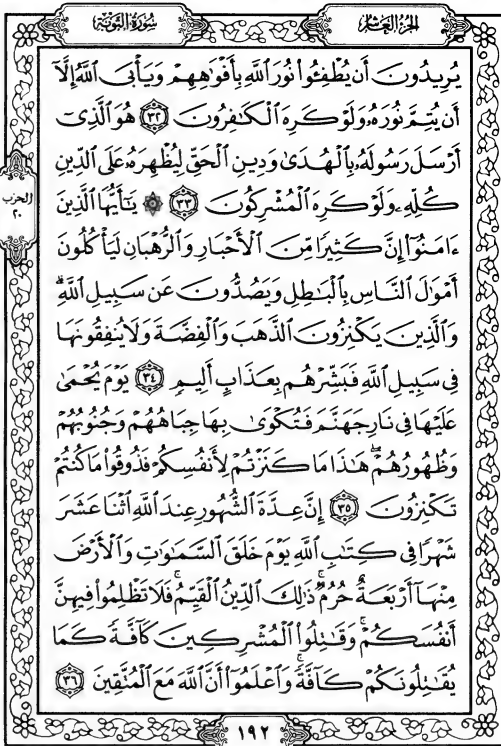 الجزء العاشر
سورة التوبة
يُرِيدُونَ أَن يُطْفِـُٔوا۟ نُورَ ٱللَّهِ بِأَفْوَٰهِهِمْ وَيَأْبَى ٱللَّهُ إِلَّآ
أَن يُتِمَّ نُورَهُۥ وَلَوْ كَرِهَ ٱلْكَـٰفِرُونَ ٣٢ هُوَ ٱلَّذِىٓ
أَرْسَلَ رَسُولَهُۥ بِٱلْهُدَىٰ وَدِينِ ٱلْحَقِّ لِيُظْهِرَهُۥ عَلَى ٱلدِّينِ
كُلِّهِۦ وَلَوْ كَرِهَ ٱلْمُشْرِكُونَ ٣٣ ۞ يَـٰٓأَيُّهَا ٱلَّذِينَ
الحزب
٢٠
ءَامَنُوٓا۟ إِنَّ كَثِيرًا مِّنَ ٱلْأَحْبَارِ وَٱلرُّهْبَانِ لَيَأْكُلُونَ
أَمْوَٰلَ ٱلنَّاسِ بِٱلْبَـٰطِلِ وَيَصُدُّونَ عَن سَبِيلِ ٱللَّهِ ۗ
وَٱلَّذِينَ يَكْنِزُونَ ٱلذَّهَبَ وَٱلْفِضَّةَ وَلَا يُنفِقُونَهَا
فِى سَبِيلِ ٱللَّهِ فَبَشِّرْهُم بِعَذَابٍ أَلِيمٍ ٣٤ يَوْمَ يُحْمَىٰ
عَلَيْهَا فِى نَارِ جَهَنَّمَ فَتُكْوَىٰ بِهَا جِبَاهُهُمْ وَجُنُوبُهُمْ
وَظُهُورُهُمْ ۖ هَـٰذَا مَا كَنَزْتُمْ لِأَنفُسِكُمْ فَذُوقُوا۟ مَا كُنتُمْ
تَكْنِزُونَ ٣٥ إِنَّ عِدَّةَ ٱلشُّهُورِ عِندَ ٱللَّهِ ٱثْنَا عَشَرَ
شَهْرًا فِى كِتَـٰبِ ٱللَّهِ يَوْمَ خَلَقَ ٱلسَّمَـٰوَٰتِ وَٱلْأَرْضَ
مِنْهَآ أَرْبَعَةٌ حُرُمٌ ۚ ذَٰلِكَ ٱلدِّينُ ٱلْقَيِّمُ ۚ فَلَا تَظْلِمُوا۟ فِيهِنَّ
أَنفُسَكُمْ ۚ وَقَـٰتِلُوا۟ ٱلْمُشْرِكِينَ كَآفَّةً كَمَا
يُقَـٰتِلُونَكُمْ كَآفَّةً ۚ وَٱعْلَمُوٓا۟ أَنَّ ٱللَّهَ مَعَ ٱلْمُتَّقِينَ ٣٦
١٩٢